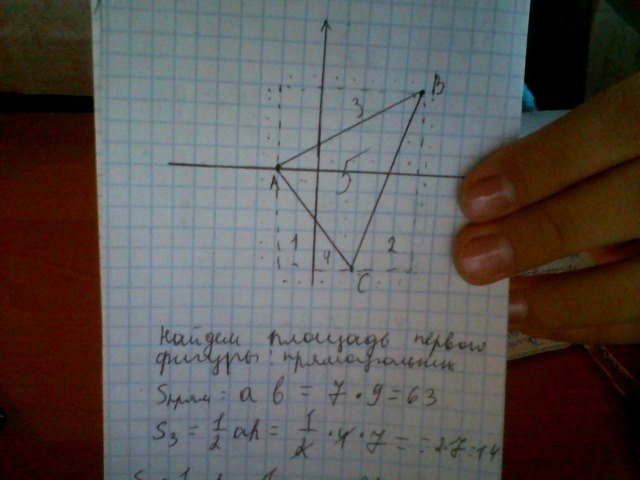 B
3
A
5
1
4
2
C
Найдем площадь первой
фигуры прямоугольник
Sпрям = a b = 7 · 9 = 63
S₃ = 1/2 ah = 1/2 · 4 · 7 = = 2·7=14